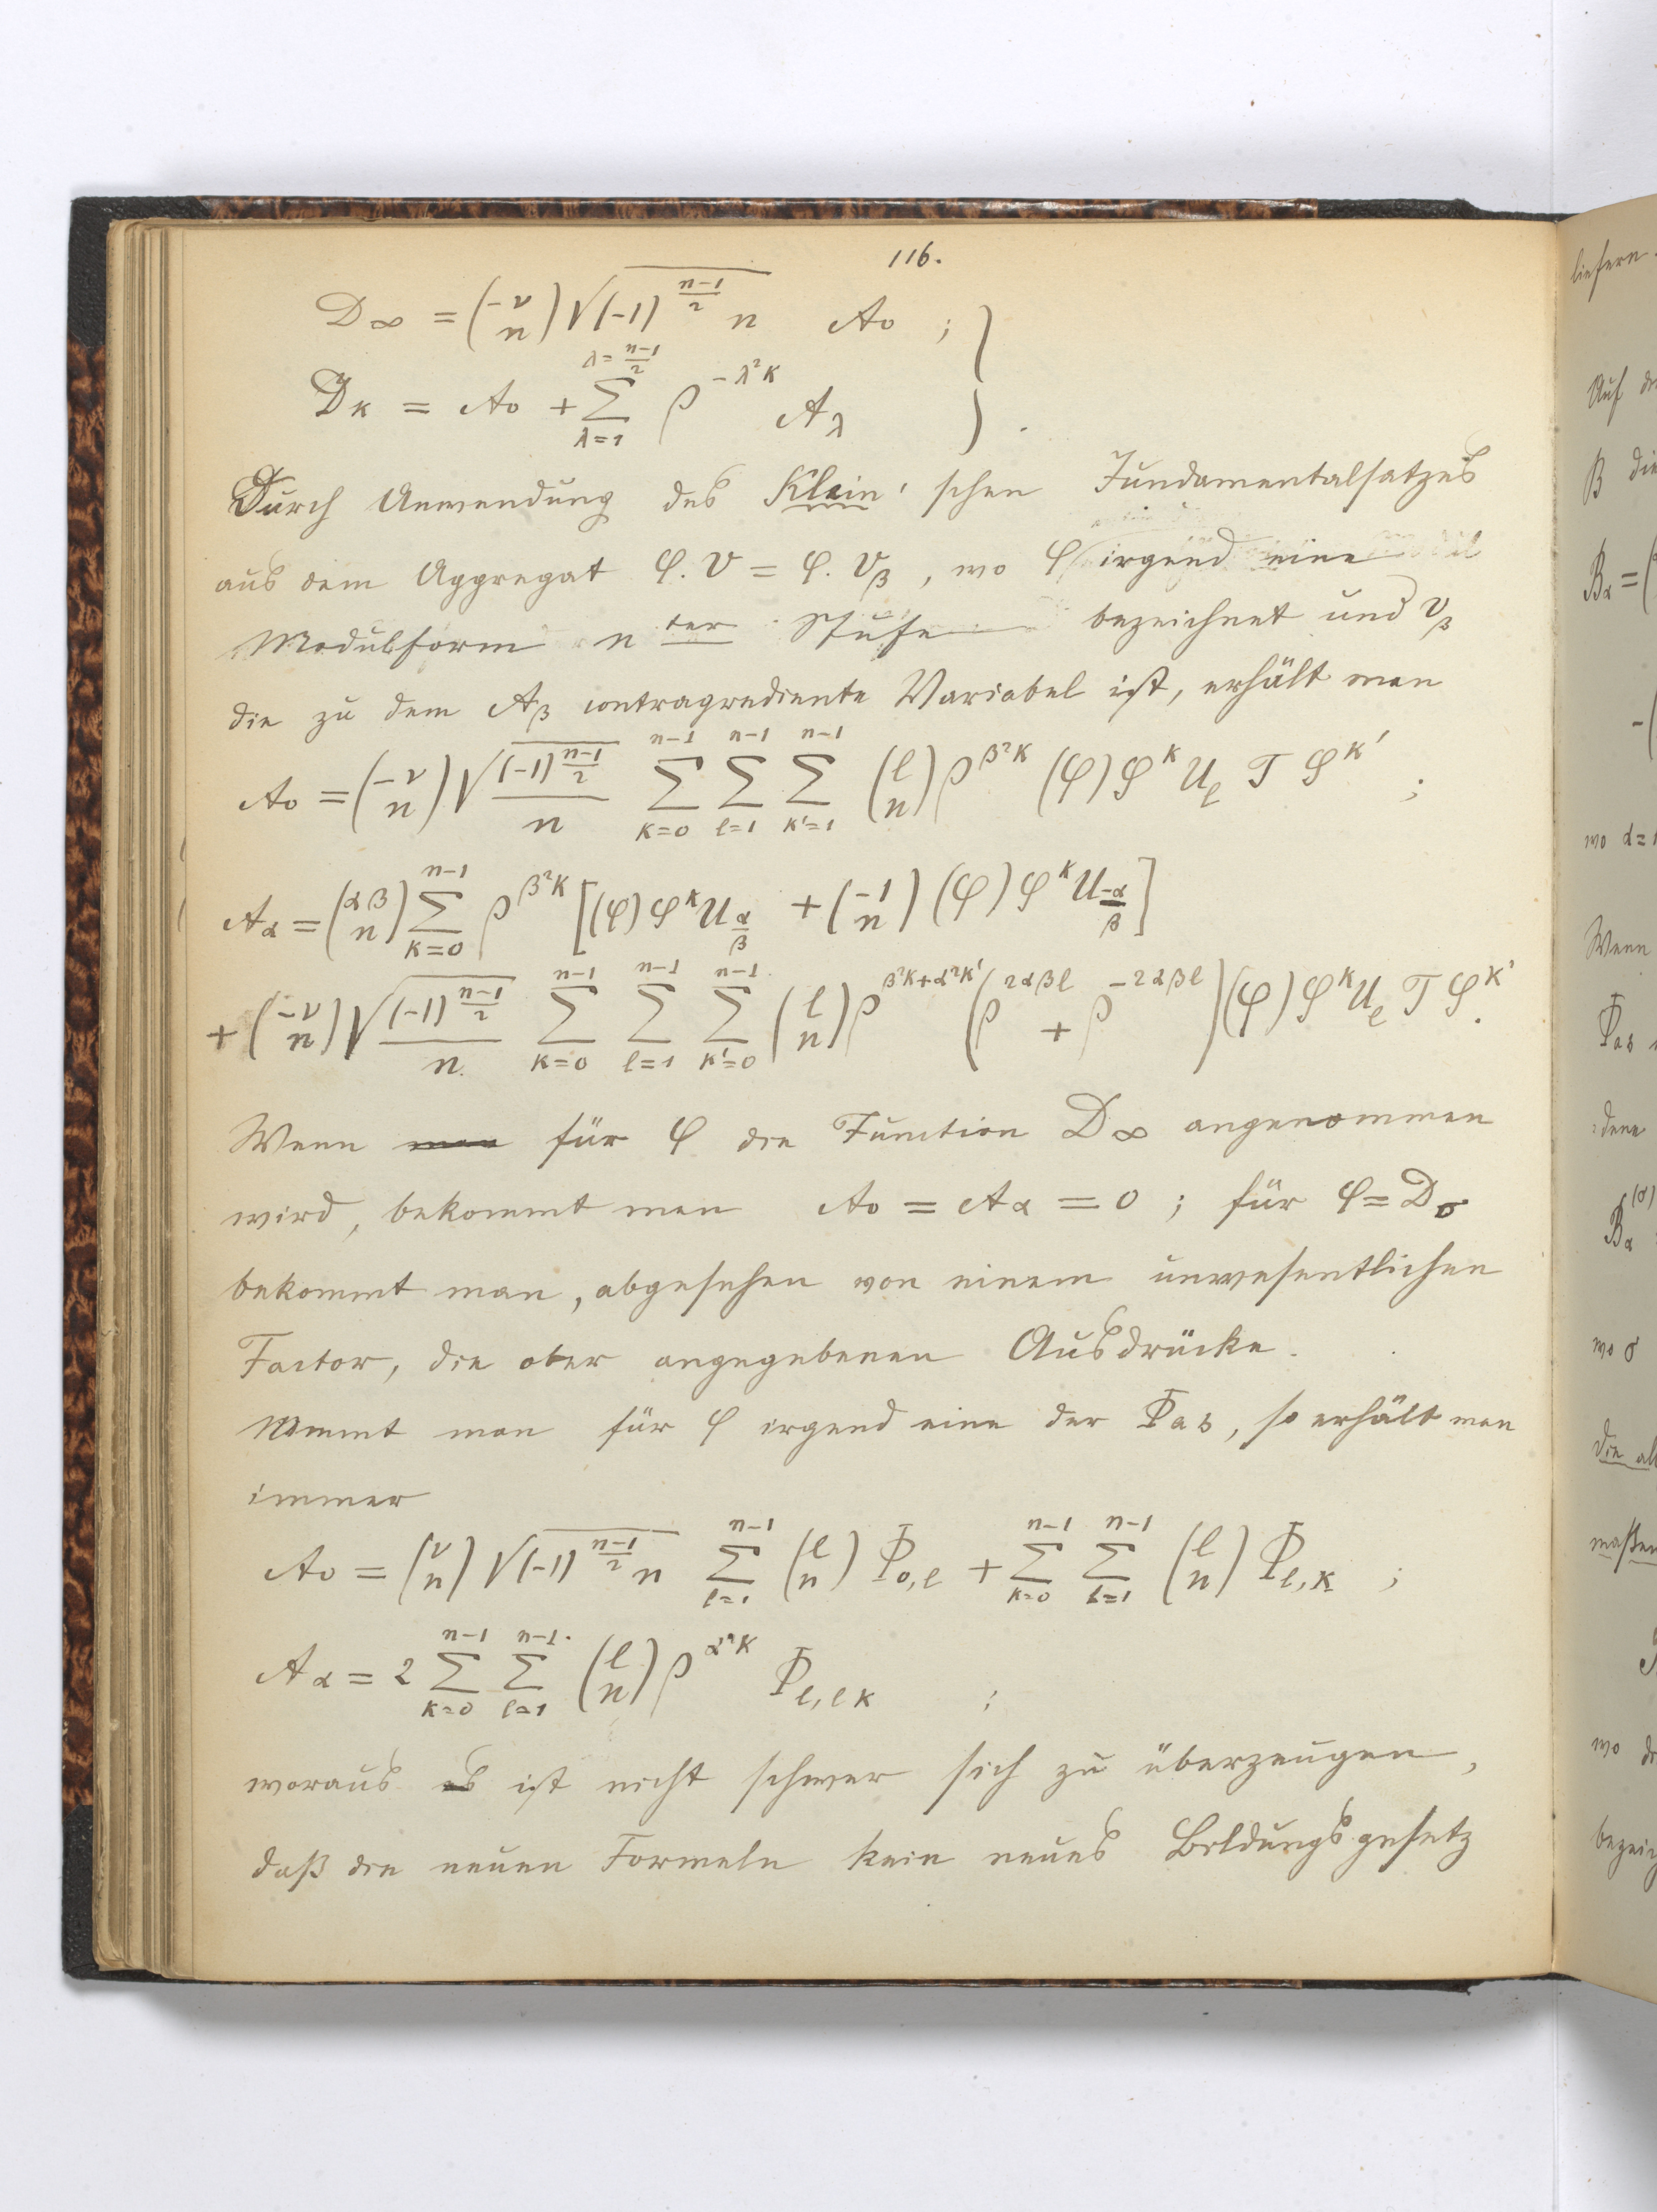 116.
D∞ = (-ν/n) √((-1)^{(n-1)/2} n) A₀ ; }
D_κ = A₀ + Σ_{λ=1}^{λ=(n-1)/2} ρ^{-λ²κ} A_λ } .
Durch Anwendung des Klein'schen Fundamentalsatzes
aus dem Aggregat φ.v = φ.v_β, wo φ irgend eine
Modulform n ter Stufe bezeichnet und v_β
die zu dem A_β contragrediente Variabel ist, erhält man
A₀ = (-ν/n) √((-1)^{(n-1)/2})/n Σ_{κ=0}^{n-1} Σ_{l=1}^{n-1} Σ_{κ'=1}^{n-1} (l/n) ρ^{β²κ} (φ) S^κ U_l T S^{κ'} ;
A_α = (αβ/n) Σ_{κ=0}^{n-1} ρ^{β²κ} [(φ) S^κ U_{α/β} + (-1/n) (φ) S^κ U_{-α/β}]
+ (-ν/n) √((-1)^{(n-1)/2})/n Σ_{κ=0}^{n-1} Σ_{l=1}^{n-1} Σ_{κ'=0}^{n-1} (l/n) ρ^{β²κ+α²κ'} (ρ^{2αβl} + ρ^{-2αβl}) (φ) S^κ U_l T S^{κ'}.
Wenn für φ die Function D∞ angenommen
wird, bekommt man A₀ = A_α = 0 ; für φ = D₀
bekommt man, abgesehen von einem unwesentlichen
Factor, die ober angegebenen Ausdrücke.
Nimmt man für φ irgend eine der Φ_{as}, so erhält man
immer
A₀ = (ν/n) √((-1)^{(n-1)/2} n) Σ_{l=1}^{n-1} (l/n) Φ_{0,l} + Σ_{κ=0}^{n-1} Σ_{l=1}^{n-1} (l/n) Φ_{l,κ} ;
A_α = 2 Σ_{κ=0}^{n-1} Σ_{l=1}^{n-1} (l/n) ρ^{α²κ} Φ_{l,lκ} ;
woraus es ist nicht schwer sich zu überzeugen,
daß die neuen Formeln kein neues Bildungsgesetz
liefern.